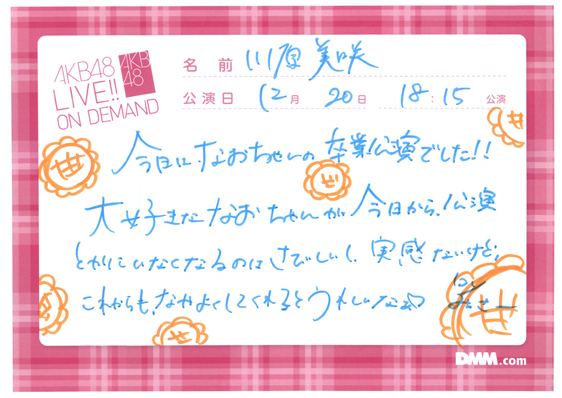 AKB48
LIVE!!
ON DEMAND
AKB
48
名前 川原美咲
公演日 12月 20日 18:15 公演
今日はなおちゃんの卒業公演でした!!
大好きななおちゃんが今日から、公演
とかにいなくなるのはさびしいし、実感ないけど、
これからも、なかよくしてくれるとうれしいな
みさきー
DMM.com